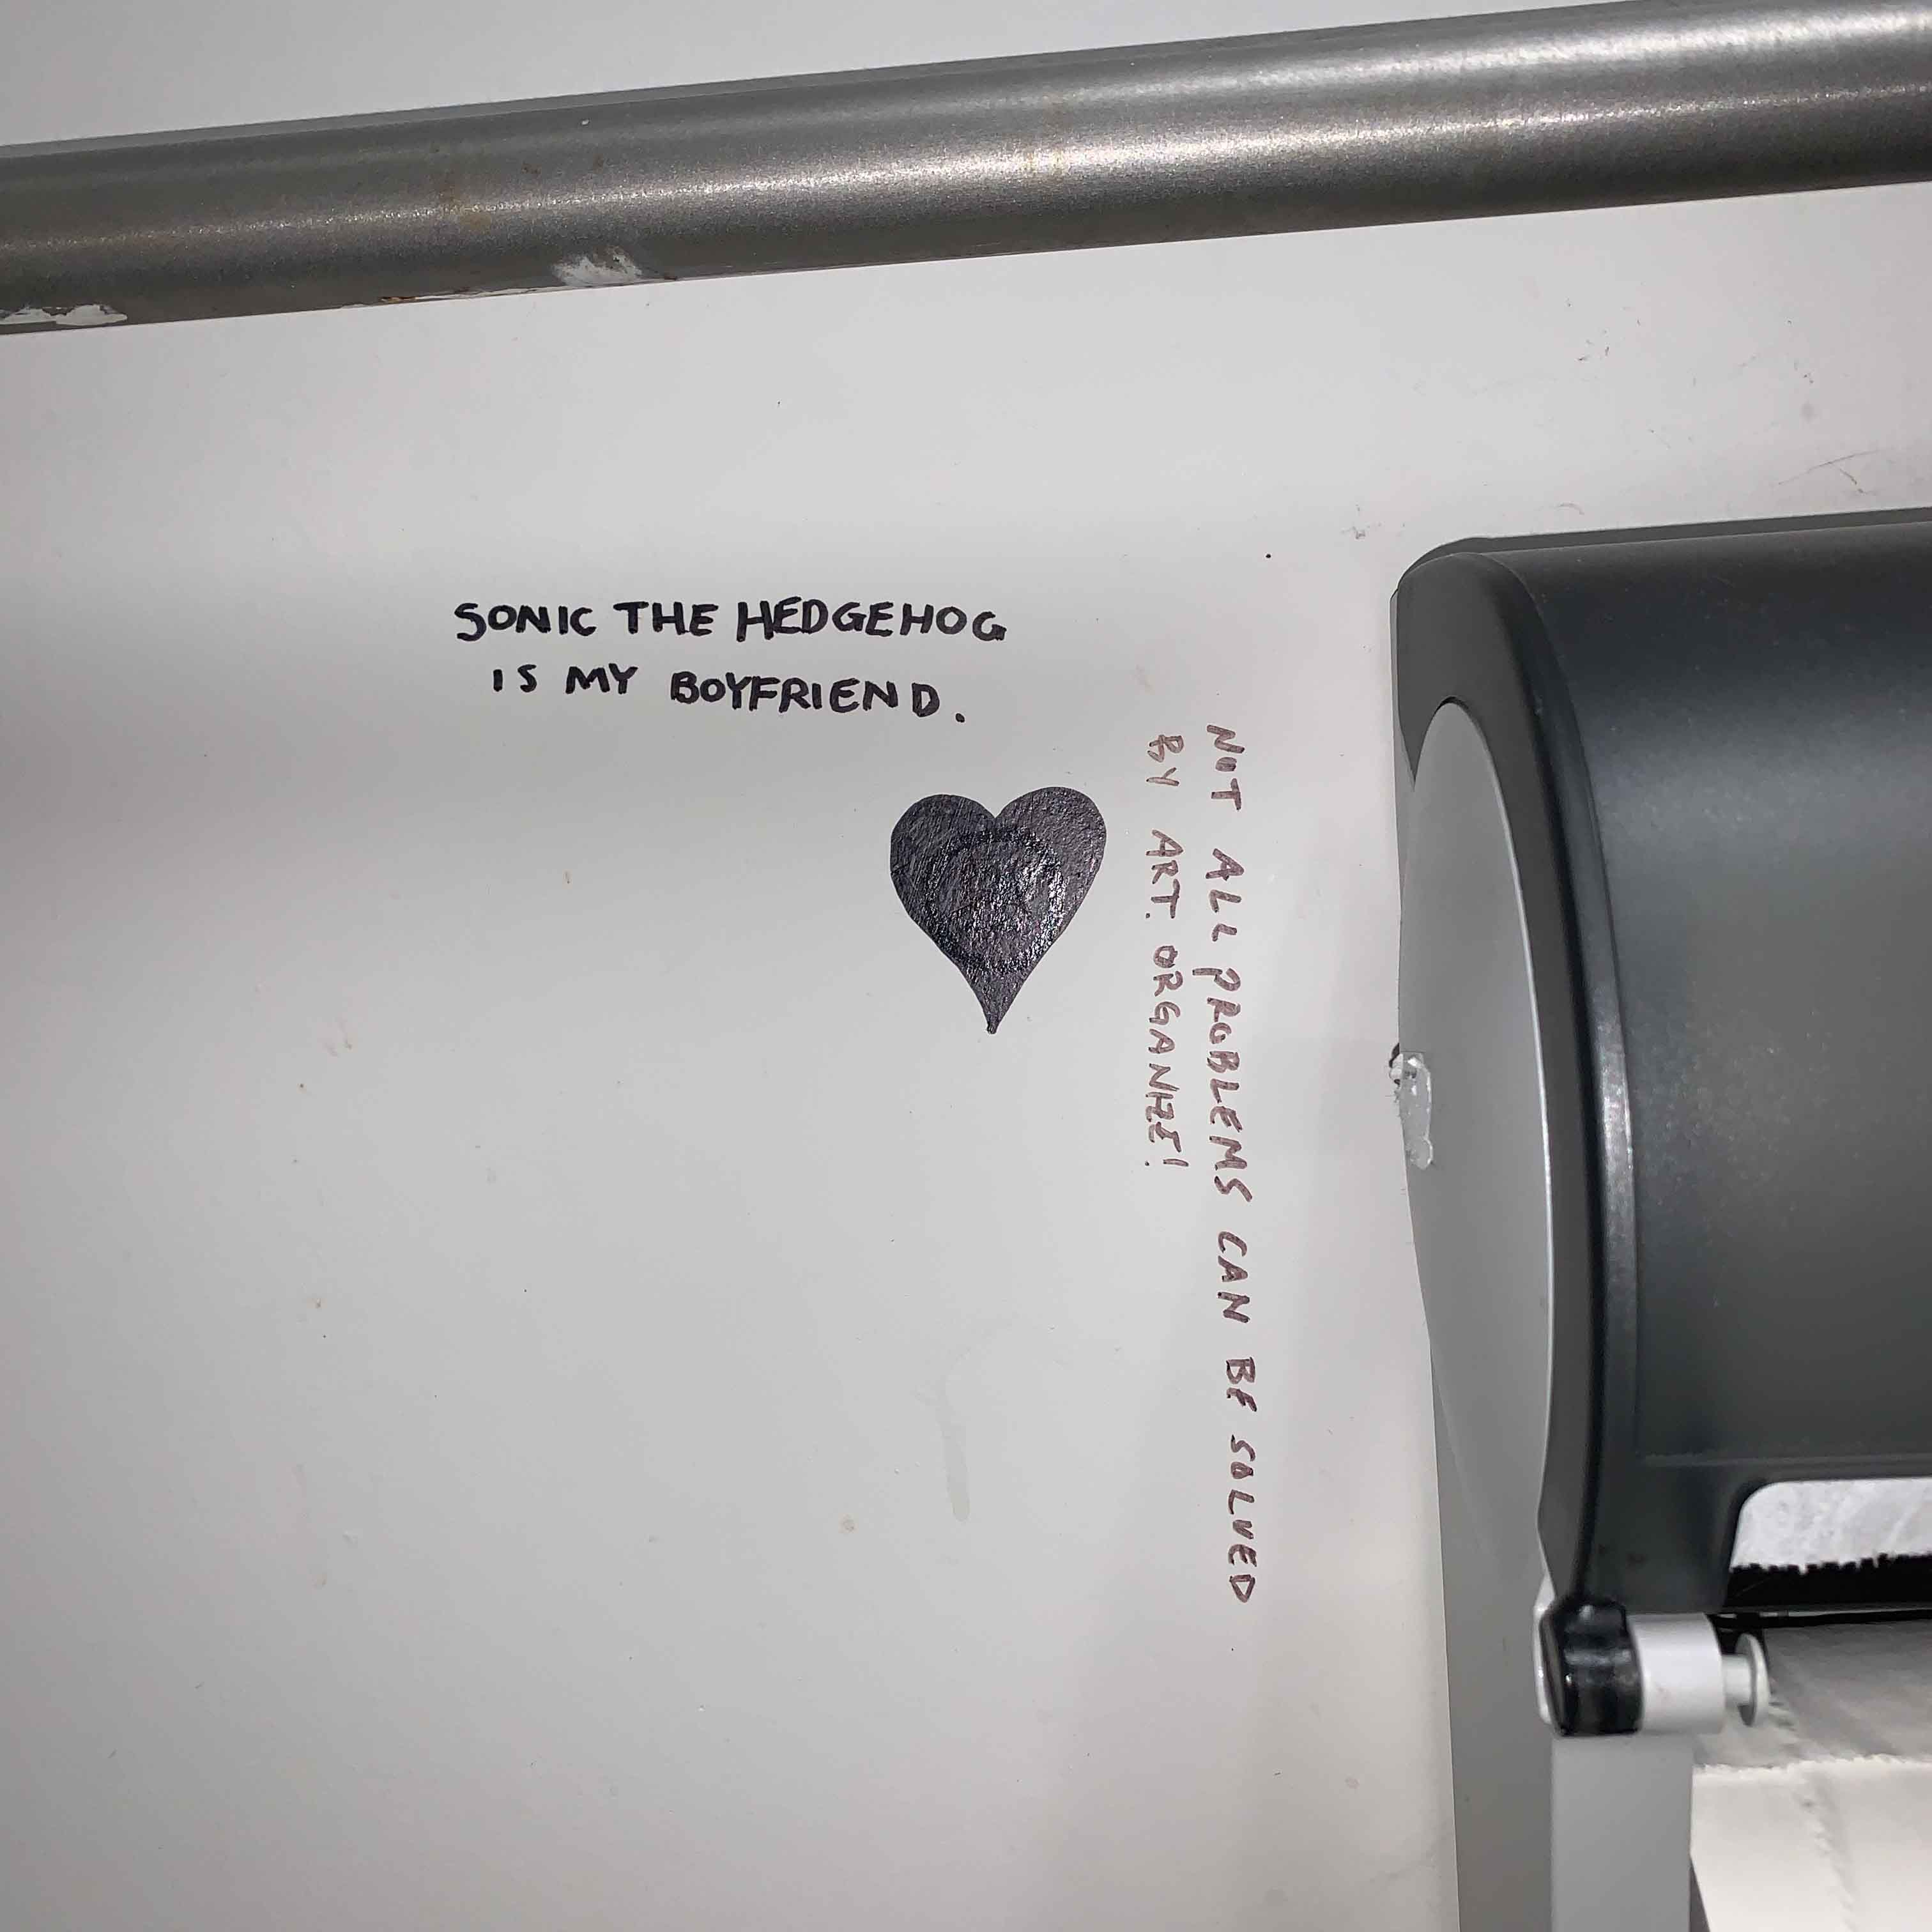 SONIC THE HEDGEHOG
IS MY BOYFRIEND.
NOT ALL PROBLEMS CAN BE SOLVED
BY ART. ORGANIZE!